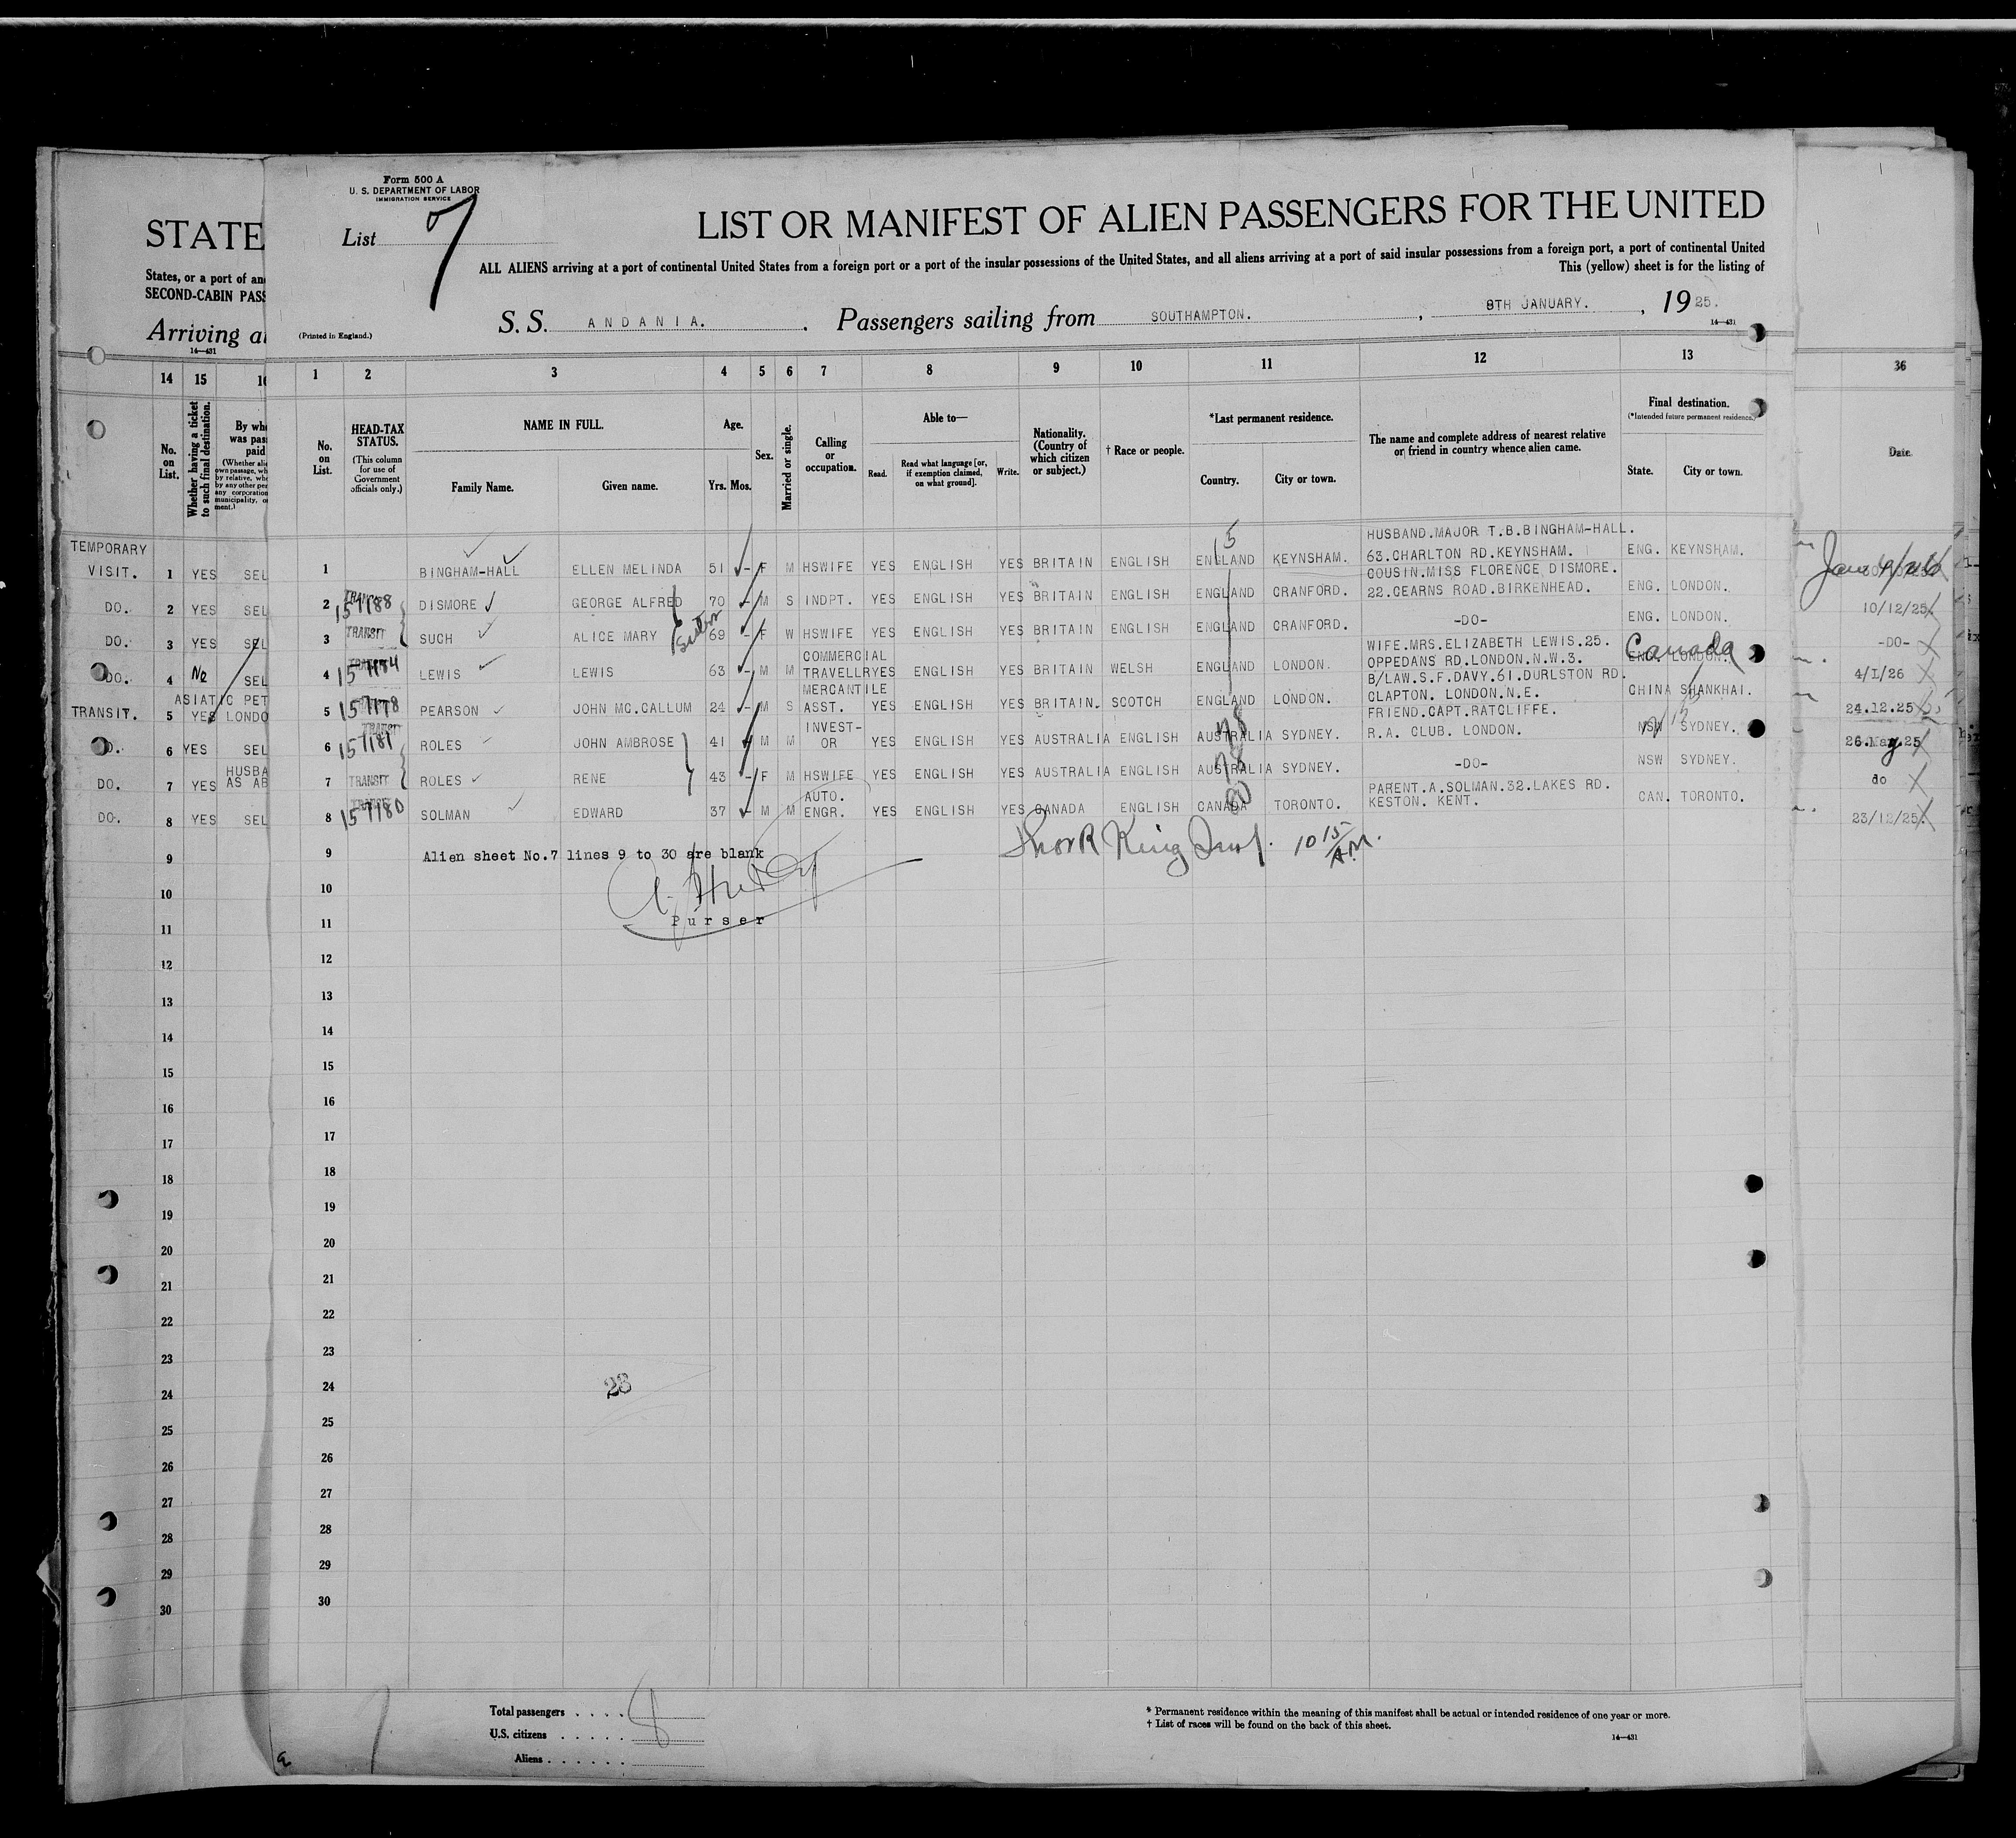 Form 500 A
U. S. DEPARTMENT OF LABOR
IMMIGRATION SERVICE
List 7
LIST OR MANIFEST OF ALIEN PASSENGERS FOR THE UNITED
ALL ALIENS arriving at a port of continental United States from a foreign port or a port of the insular possessions of the United States, and all aliens arriving at a port of said insular possessions from a foreign port, a port of continental United
This (yellow) sheet is for the listing of
(Printed in England.)
S. S. ANDANIA. Passengers sailing from SOUTHAMPTON. , 8TH JANUARY. , 1925.
14—431
STATE
States, or a port of
SECOND-CABIN
Arriving
14—431
14 15
No. on List.
Whether having a ticket to such final destination.
By
was
paid
1 2 3 4 5 6 7 8 9 10 11 12 13 36
No. on List.
HEAD-TAX STATUS.
(This column for use of Government officials only.)
NAME IN FULL.
Family Name. Given name.
Age.
Yrs. Mos.
Sex.
Married or single.
Calling or occupation.
Able to—
Read. Read what language [or, if exemption claimed, on what ground]. Write.
Nationality. (Country of which citizen or subject.)
† Race or people.
*Last permanent residence.
Country. City or town.
The name and complete address of nearest relative or friend in country whence alien came.
Final destination.
(*Intended future permanent residence.)
State. City or town.
Date.
TEMPORARY VISIT. 1 YES
1 BINGHAM-HALL ELLEN MELINDA 51 - F M HSWIFE YES ENGLISH YES BRITAIN ENGLISH ENGLAND KEYNSHAM. HUSBAND.MAJOR T.B.BINGHAM-HALL. 63.CHARLTON RD.KEYNSHAM. ENG. KEYNSHAM.
DO. 2 YES
2 TRANSIT 157188 DISMORE GEORGE ALFRED 70 - M S INDPT. YES ENGLISH YES BRITAIN ENGLISH ENGLAND CRANFORD. COUSIN.MISS FLORENCE DISMORE. 22.CEARNS ROAD.BIRKENHEAD. ENG. LONDON. 10/12/25.
DO. 3 YES
3 TRANSIT SUCH ALICE MARY Sister 69 - F W HSWIFE YES ENGLISH YES BRITAIN ENGLISH ENGLAND CRANFORD. -DO- ENG. LONDON. -DO-
DO. 4 No
4 157184 LEWIS LEWIS 63 - M M COMMERCIAL TRAVELLR YES ENGLISH YES BRITAIN WELSH ENGLAND LONDON. WIFE.MRS.ELIZABETH LEWIS.25. OPPEDANS RD.LONDON.N.W.3. ENG. LONDON. Canada 4/I/26
TRANSIT. 5 YES
5 157178 PEARSON JOHN MC.CALLUM 24 - M S MERCANTILE ASST. YES ENGLISH YES BRITAIN. SCOTCH ENGLAND LONDON. B/LAW.S.F.DAVY.61.DURLSTON RD. CLAPTON. LONDON.N.E. CHINA SHANKHAI. 24.12.25
6 YES
6 TRANSIT 157181 ROLES JOHN AMBROSE 41 M M INVEST-OR YES ENGLISH YES AUSTRALIA ENGLISH AUSTRALIA SYDNEY. FRIEND.CAPT.RATCLIFFE. R.A. CLUB. LONDON. NSW SYDNEY. 26.May.25
DO. 7 YES
7 TRANSIT ROLES RENE 43 - F M HSWIFE YES ENGLISH YES AUSTRALIA ENGLISH AUSTRALIA SYDNEY. -DO- NSW SYDNEY. do
DO. 8 YES
8 157180 SOLMAN EDWARD 37 - M M AUTO. ENGR. YES ENGLISH YES CANADA ENGLISH CANADA TORONTO. PARENT.A.SOLMAN.32.LAKES RD. KESTON. KENT. CAN. TORONTO. 23/12/25.
9 Alien sheet No.7 lines 9 to 30 are blank
10 15 A.M.
10
Purser
11
12
13
14
15
16
17
18
19
20
21
22
23
24 23
25
26
27
28
29
30
Total passengers . . . . 8
U.S. citizens . . . . . .
Aliens . . . . . .
* Permanent residence within the meaning of this manifest shall be actual or intended residence of one year or more.
† List of races will be found on the back of this sheet.
14—431